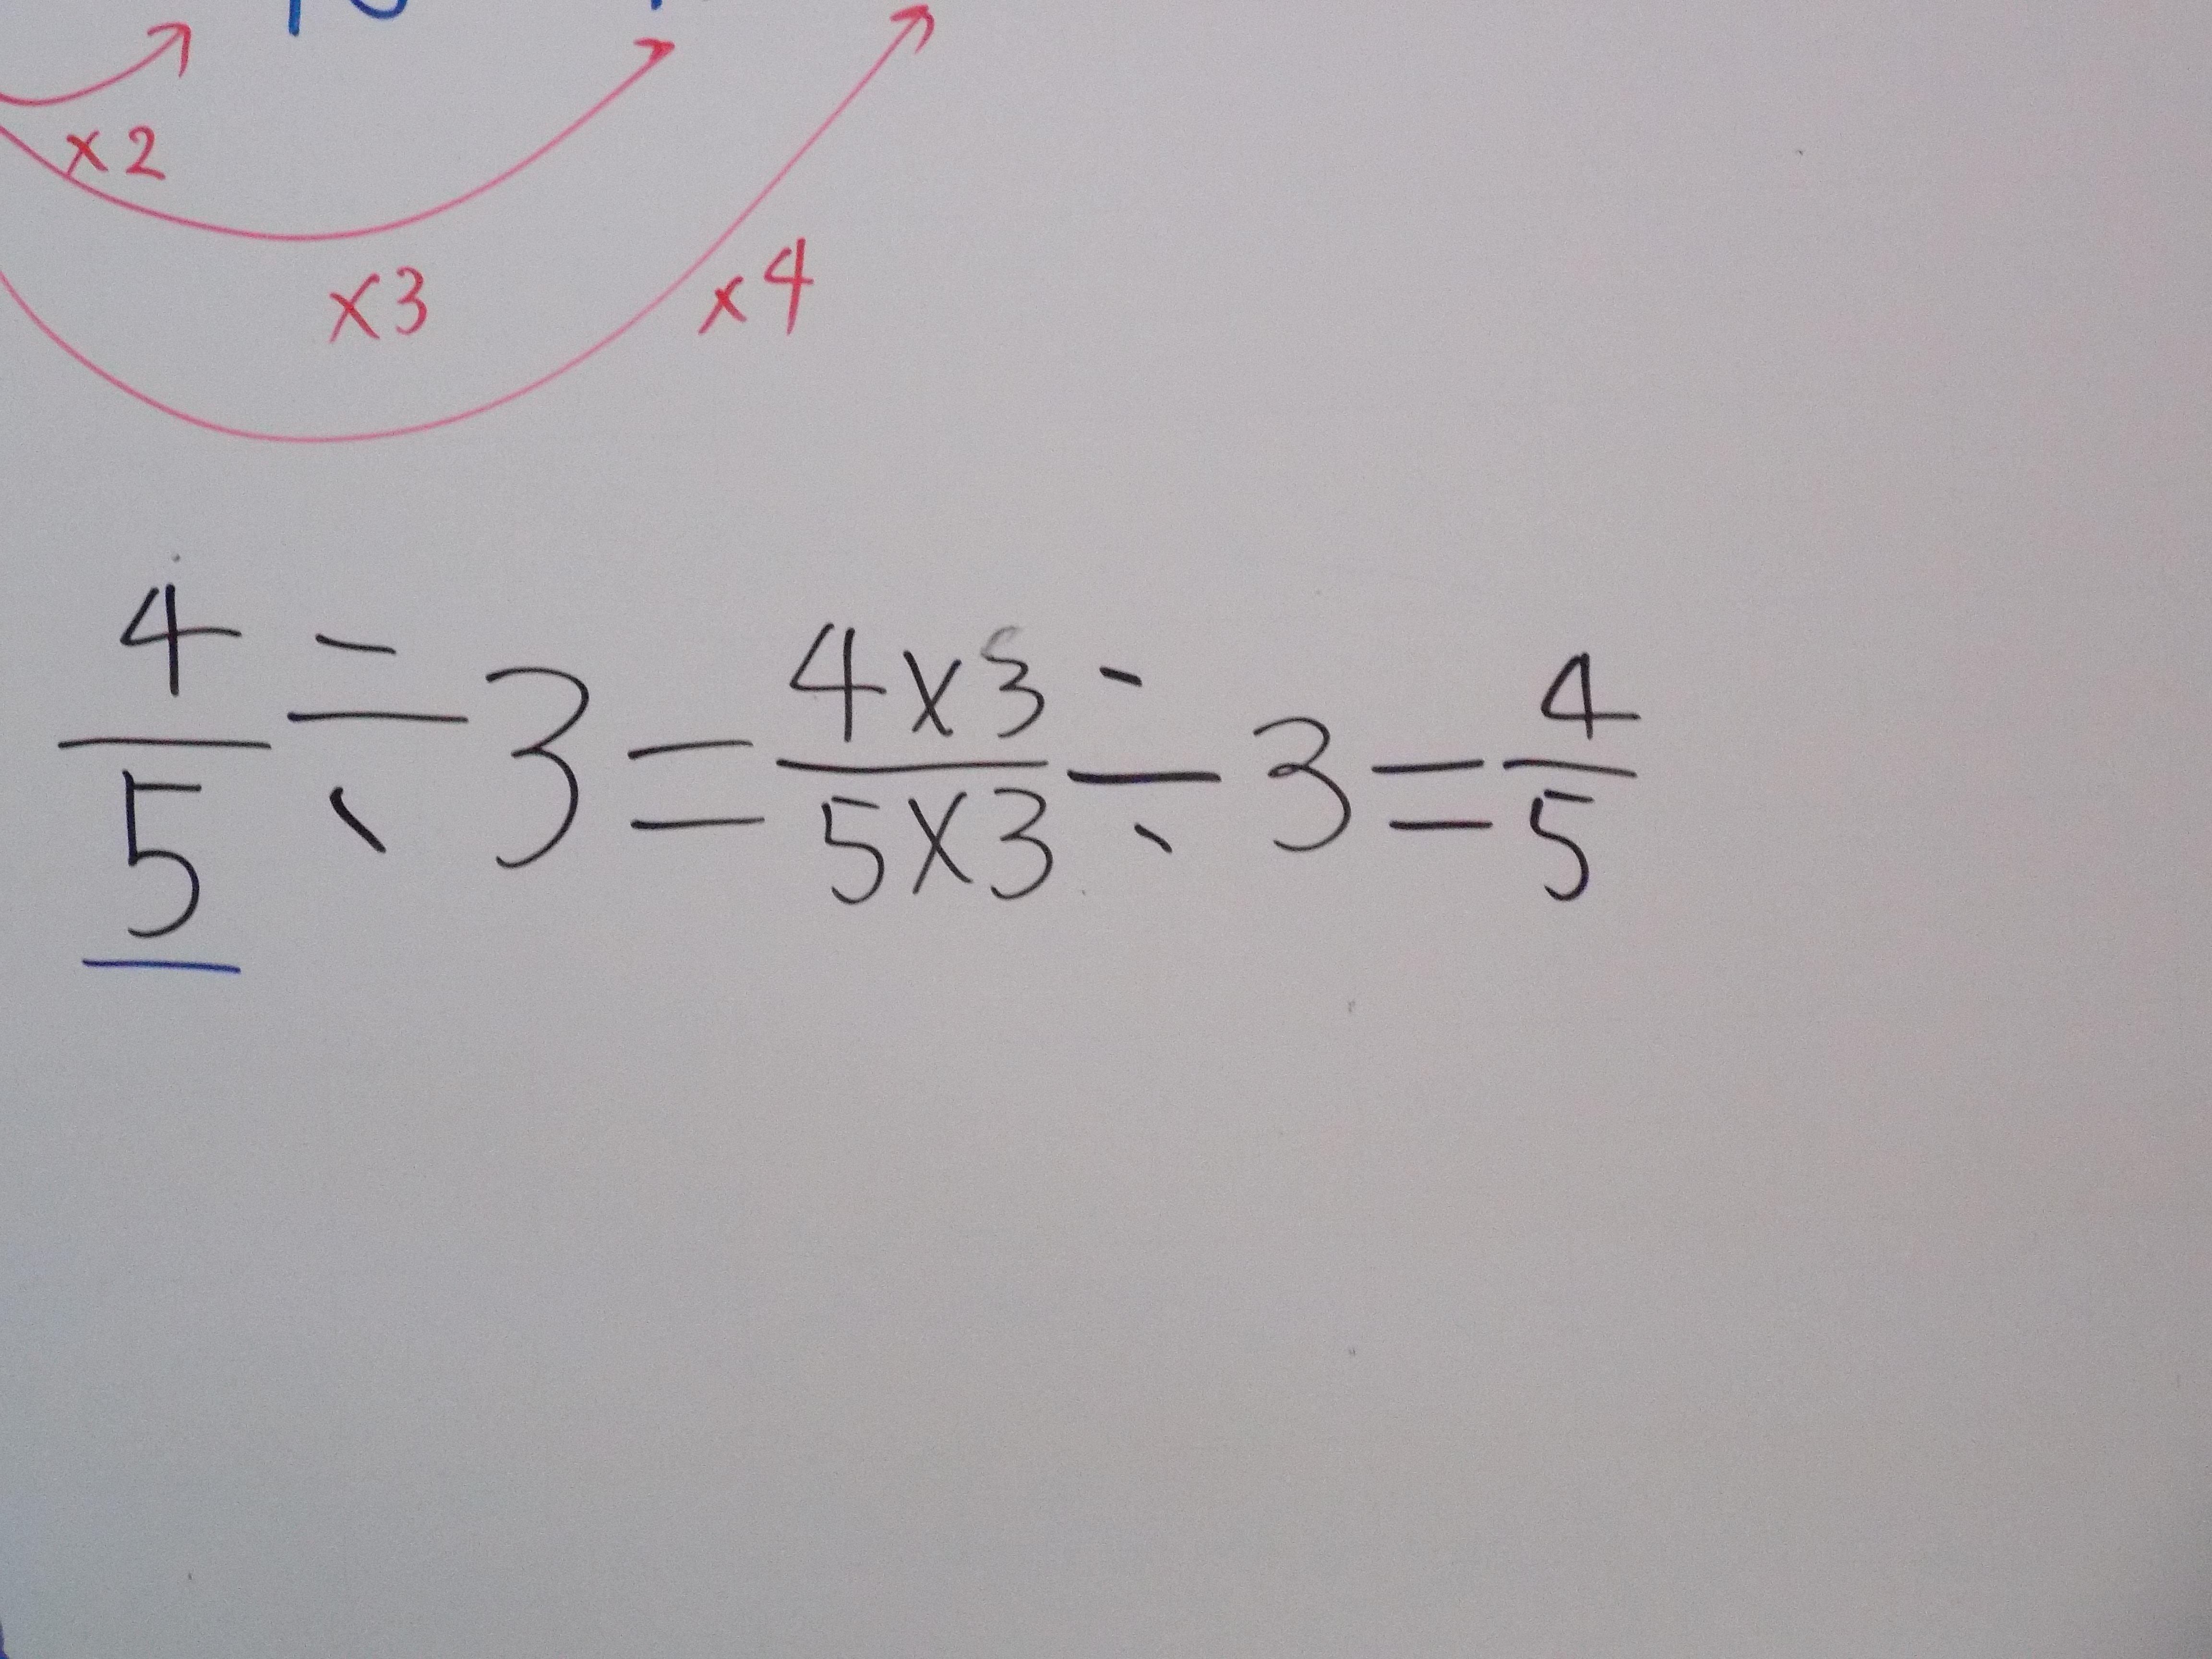 ×2
×3
×4
4/5 ÷ 3 = 4×3/5×3 ÷ 3 = 4/5